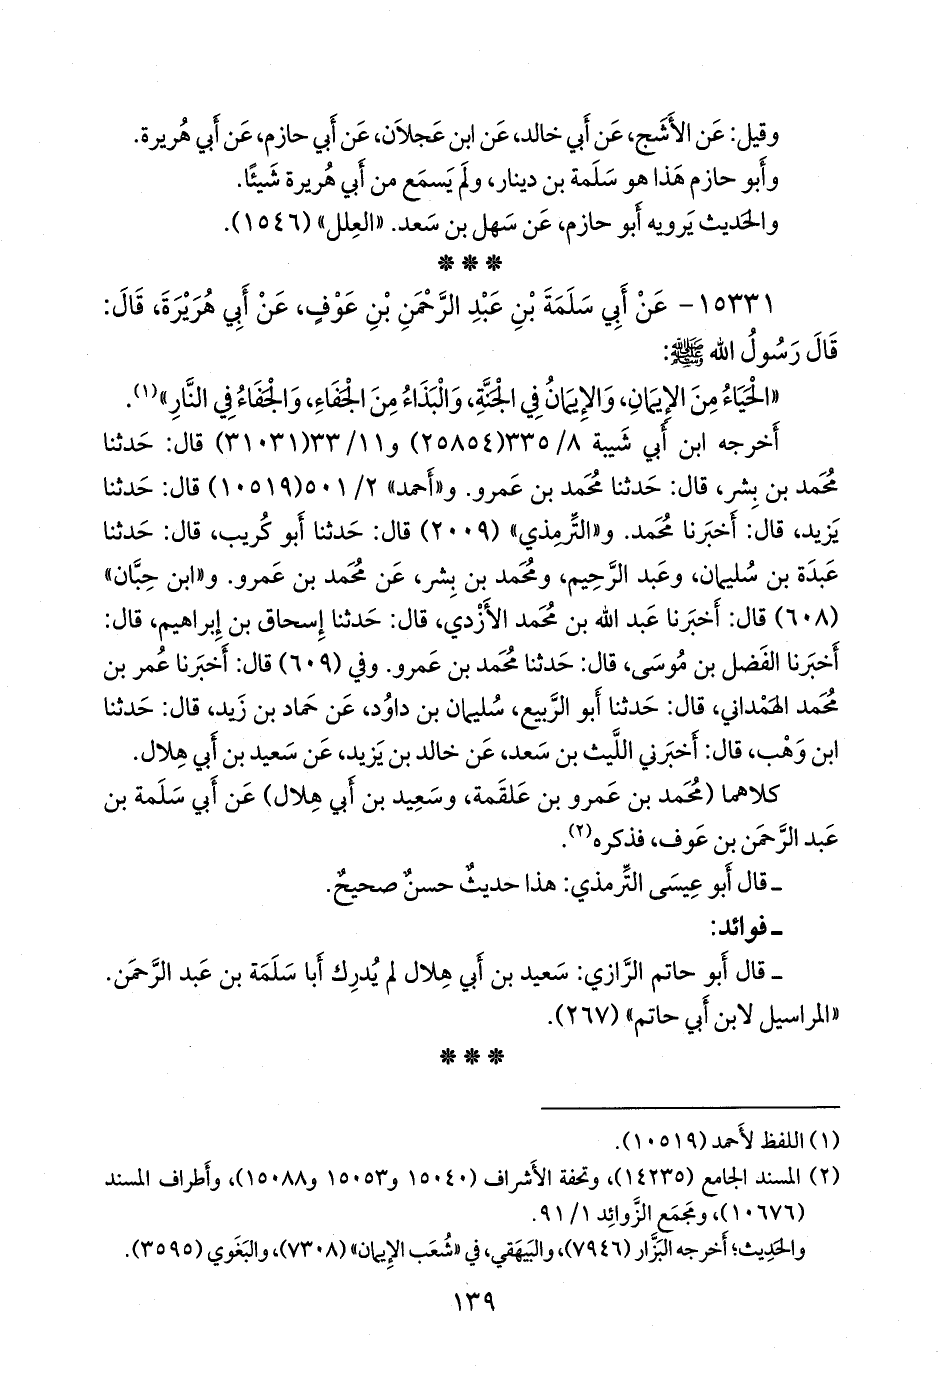 وقيل: عَن الأَشَج، عَن أَبي خالد، عَن ابن عَجلاَن، عَن أَبي حازم، عَن أَبي هُريرة.
وأَبو حازم هَذا هو سَلَمة بن دينار، ولم يَسمَع من أَبي هُريرة شَيئًا.
والحَديث يَرويه أَبو حازم، عَن سَهل بن سَعد. «العِلل» (١٥٤٦).
* * *
١٥٣٣١ - عَنْ أَبِي سَلَمَةَ بْنِ عَبْدِ الرَّحْمَنِ بْنِ عَوْفٍ، عَنْ أَبِي هُرَيْرَةَ، قَالَ:
قَالَ رَسُولُ الله ﷺ:
«الْحَيَاءُ مِنَ الإِيمَانِ، وَالإِيمَانُ فِي الْجَنَّةِ، وَالْبَذَاءُ مِنَ الْجَفَاءِ، وَالْجَفَاءُ فِي النَّارِ»(١).
أَخرجه ابن أَبي شَيبة ٨/ ٣٣٥(٢٥٨٥٤) و١١/ ٣٣(٣١٠٣١) قال: حَدثنا
مُحمد بن بِشر، قال: حَدثنا مُحمد بن عَمرو. و«أَحمد» ٢/ ٥٠١(١٠٥١٩) قال: حَدثنا
يَزيد، قال: أَخبَرنا مُحمد. و«التِّرمِذي» (٢٠٠٩) قال: حَدثنا أَبو كُريب، قال: حَدثنا
عَبدَة بن سُليمان، وعَبد الرَّحِيم، ومُحمد بن بِشر، عَن مُحمد بن عَمرو. و«ابن حِبَّان»
(٦٠٨) قال: أَخبَرنا عَبد الله بن مُحمد الأَزْدي، قال: حَدثنا إِسحاق بن إِبراهيم، قال:
أَخبَرنا الفَضل بن مُوسَى، قال: حَدثنا مُحمد بن عَمرو. وفي (٦٠٩) قال: أَخبَرنا عُمر بن
مُحمد الهَمْداني، قال: حَدثنا أَبو الرَّبيع، سُليمان بن داوُد، عَن حَماد بن زَيد، قال: حَدثنا
ابن وَهْب، قال: أَخبَرني اللَّيث بن سَعد، عَن خالد بن يَزيد، عَن سَعيد بن أَبي هِلال.
كلاهما (مُحمد بن عَمرو بن عَلقمة، وسَعِيد بن أَبي هِلال) عَن أَبي سَلَمة بن
عَبد الرَّحمَن بن عَوف، فذكره(٢).
ـ قال أَبو عِيسَى التِّرمذي: هذا حديثٌ حسنٌ صحيحٌ.
ـ فوائد:
ـ قال أَبو حاتم الرَّازي: سَعيد بن أَبي هِلال لم يُدرِك أَبا سَلَمَة بن عَبد الرَّحمَن.
«المراسيل لابن أَبي حاتم» (٢٦٧).
* * *
(١) اللفظ لأَحمد (١٠٥١٩).
(٢) المسند الجامع (١٤٢٣٥)، وتحفة الأَشراف (١٥٠٤٠ و١٥٠٥٣ و١٥٠٨٨)، وأَطراف المسند
(١٠٦٧٦)، ومَجمَع الزَّوائِد ١/ ٩١.
والحَدِيث؛ أَخرجه البَزَّار (٧٩٤٦)، والبَيهَقي، في «شُعَب الإِيمان» (٧٣٠٨)، والبَغَوي (٣٥٩٥).
١٣٩